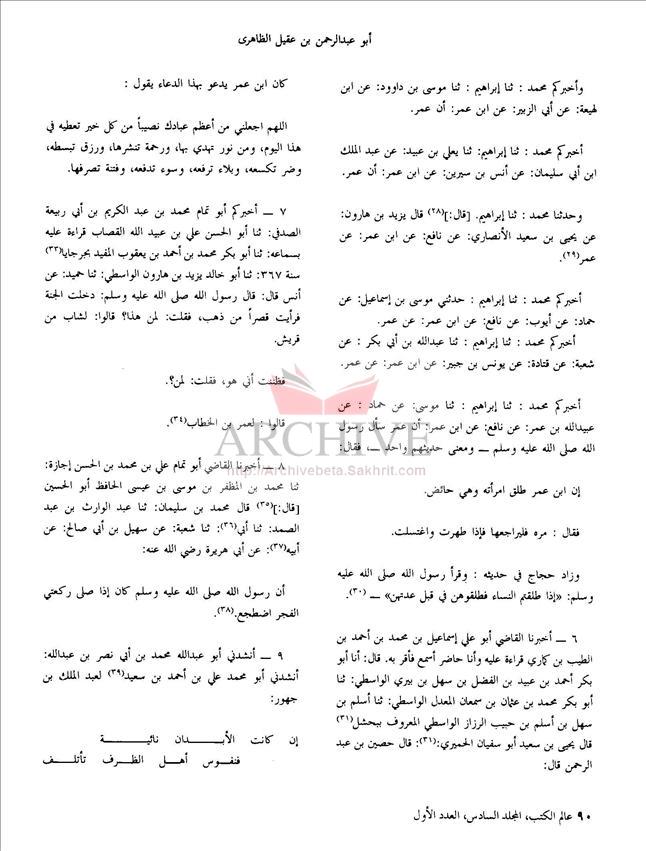 أبو عبدالرحمن بن عقيل الظاهرى
وأخبركم محمد : ثنا إبراهيم : ثنا موسى بن داوود: عن ابن
لهيعة: عن أبي الزبير: عن ابن عمر: أن عمر.
أخبركم محمد : ثنا إبراهيم: ثنا يعلي بن عبيد: عن عبد الملك
ابن أبي سليمان: عن أنس بن سيرين: عن ابن عمر: أن عمر.
وحدثنا محمد : ثنا إبراهيم. [قال:](٢٨) قال يزيد بن هارون:
عن يحيى بن سعيد الأنصاري: عن نافع: عن ابن عمر: عن
عمر(٢٩).
أخبركم محمد : ثنا إبراهيم : حدثني موسى بن إسماعيل: عن
حماد: عن أيوب: عن نافع: عن ابن عمر: عن عمر.
أخبركم محمد : ثنا إبراهيم : ثنا عبدالله بن أبي بكر : عن
شعبة: عن قتادة: عن يونس بن جبير: عن ابن عمر: عن عمر.
أخبركم محمد : ثنا إبراهيم : ثنا موسى: عن حماد : عن
عبيدالله بن عمر: عن نافع: عن ابن عمر: أن عمر سأل رسول
الله صلى الله عليه وسلم ــ ومعنى حديثهم واحد ــ، فقال:
إن ابن عمر طلق امرأته وهي حائض.
فقال : مره فليراجعها فإذا طهرت واغتسلت.
وزاد حجاج في حديثه : وقرأ رسول الله صلى الله عليه
وسلم: «إذا طلقتم النساء فطلقوهن في قبل عدتهن» ــ (٣٠).
٦ ــ أخبرنا القاضي أبو علي إسماعيل بن محمد بن أحمد بن
الطيب بن كماري قراءة عليه وأنا حاضر أسمع فأقر به. قال: أنا أبو
بكر أحمد بن عبيد بن الفضل بن سهل بن بيري الواسطي: ثنا
أبو بكر محمد بن عثمان بن سمعان المعدل الواسطي: ثنا أسلم بن
سهل بن أسلم بن حبيب الرزاز الواسطي المعروف ببحشل(٣١)
قال يحيى بن سعيد أبو سفيان الحميري:(٣١): قال حصين بن عبد
الرحمن قال:
كان ابن عمر يدعو بهذا الدعاء يقول :
اللهم اجعلني من أعظم عبادك نصيباً من كل خير تعطيه في
هذا اليوم، ومن نور تهدي بها، ورحمة تنشرها، ورزق تبسطه،
وضر تكسعه، وبلاء ترفعه، وسوء تدفعه، وفتنة تصرفها.
٧ ــ أخبركم أبو تمام محمد بن عبد الكريم بن أبي ربيعة
الصدفي: ثنا أبو الحسن علي بن عبيد الله القصاب قراءة عليه
بسماعه: ثنا أبو بكر محمد بن أحمد بن يعقوب المفيد بجرجايا(٣٣)
سنة ٣٦٧: ثنا أبو خالد يزيد بن هارون الواسطي: ثنا حميد: عن
أنس قال: قال رسول الله صلى الله عليه وسلم: دخلت الجنة
فرأيت قصراً من ذهب، فقلت: لمن هذا؟ قالوا: لشاب من
قريش.
فظننت أني هو، فقلت: لمن؟.
قالوا : لعمر بن الخطاب(٣٤).
٨ ــ أخبرنا القاضي أبو تمام علي بن محمد بن الحسن إجازة:
ثنا محمد بن المظفر بن موسى بن عيسى الحافظ أبو الحسين
[قال:](٣٥) قال محمد بن سليمان: ثنا عبد الوارث بن عبد
الصمد: ثنا أبي(٣٦): ثنا شعبة: عن سهيل بن أبي صالح: عن
أبيه(٣٧): عن أبي هريرة رضي الله عنه:
أن رسول الله صلى الله عليه وسلم كان إذا صلى ركعتي
الفجر اضطجع.(٣٨).
٩ ــ أنشدني أبو عبدالله محمد بن أبي نصر بن عبدالله:
أنشدني أبو محمد علي بن أحمد بن سعيد(٣٩) لعبد الملك بن
جهور:
إن كانت الأبــدان نائيــة
فنفوس أهل الظرف تأتلف
ARCHIVE
http://Archivebeta.Sakhrit.com
٩٠ عالم الكتب، المجلد السادس، العدد الأول